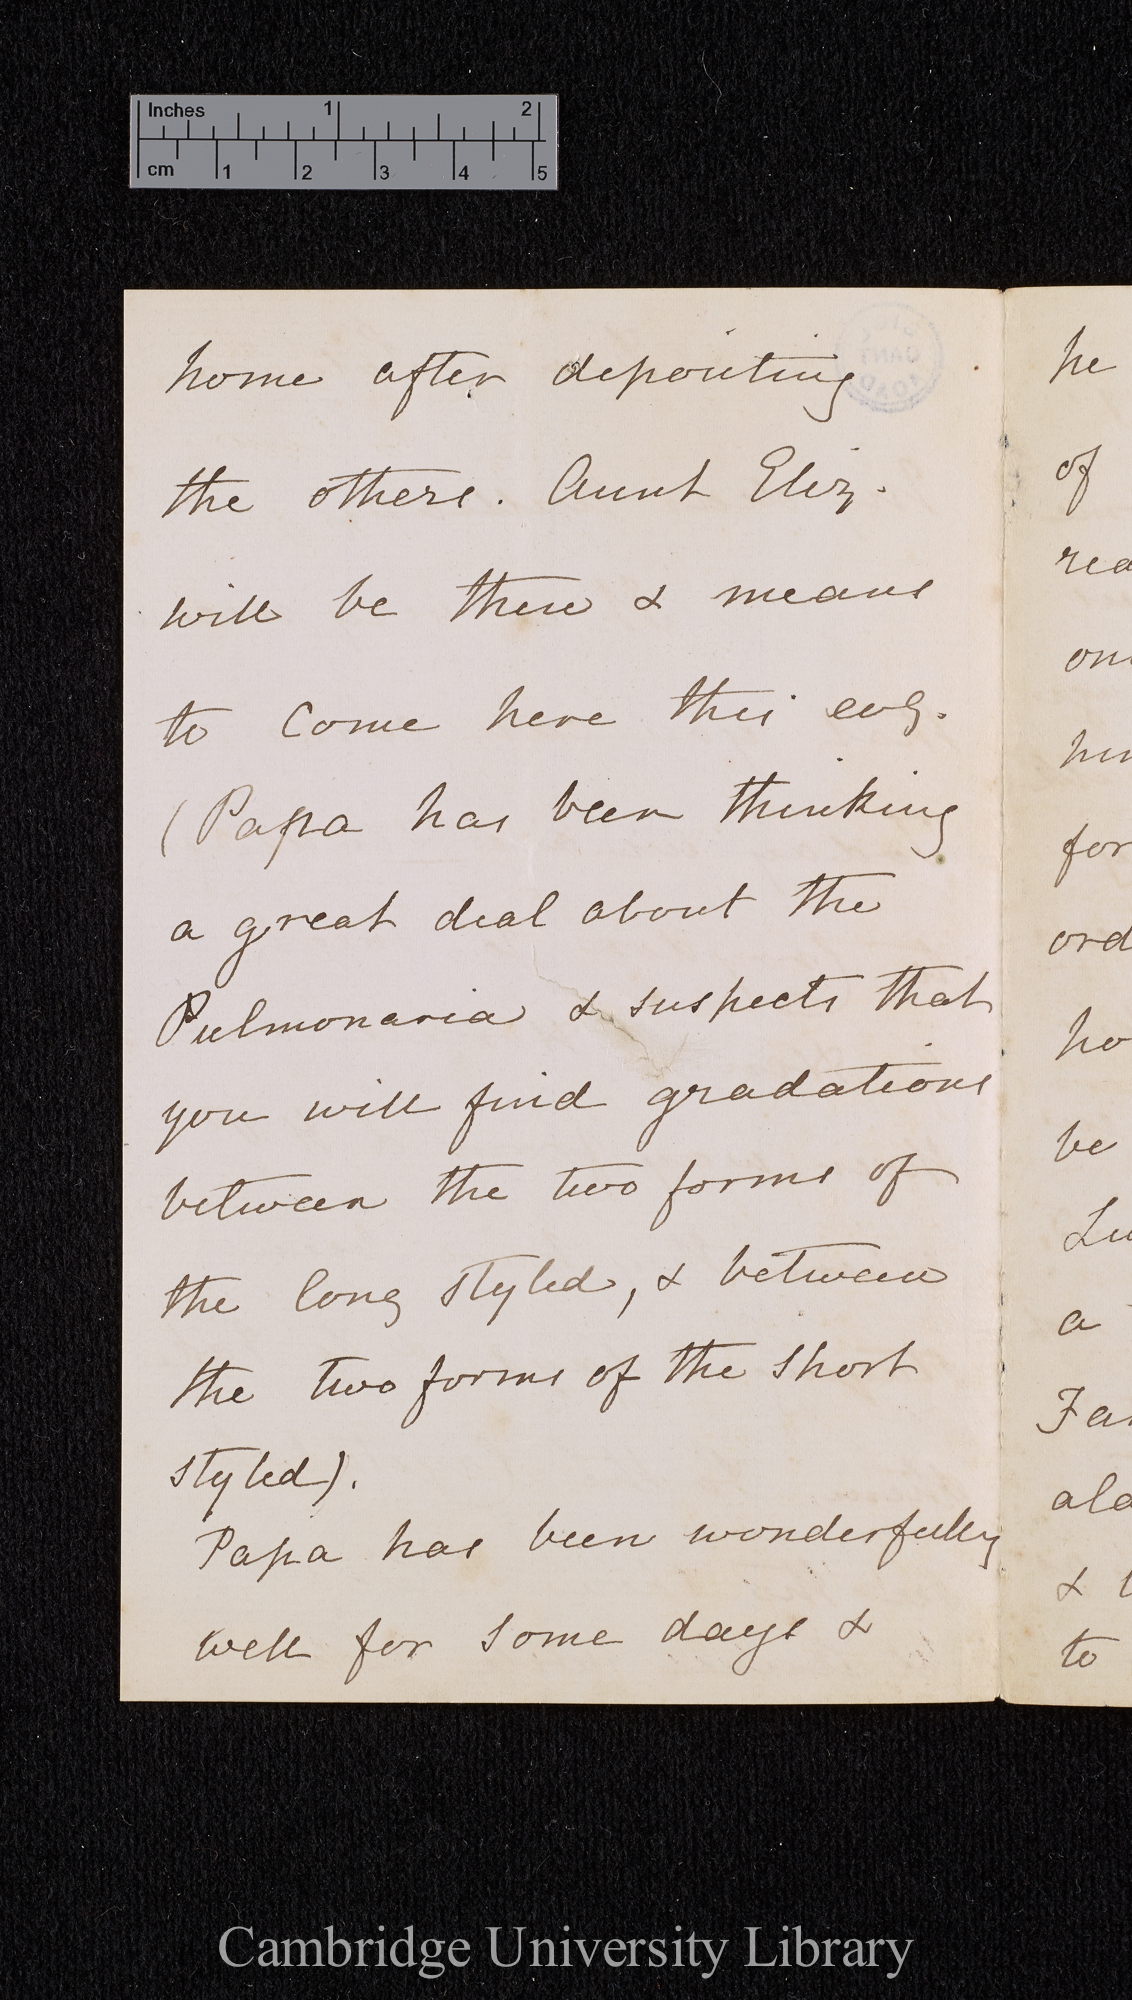 Inches 1 2
cm 1 2 3 4 5
home after depositing
the others. Aunt Eliz.
will be there & means
to come here this evg.
(Papa has been thinking
a great deal about the
Pulmonaria & suspects that
you will find gradations
between the two forms of
the long styled, & between
the two forms of the short
styled).
Papa has been wonderfully
well for some days &
he
of
rea
on
for
ord
ho
be
Lu
a
Far
ala
&
to
Cambridge University Library